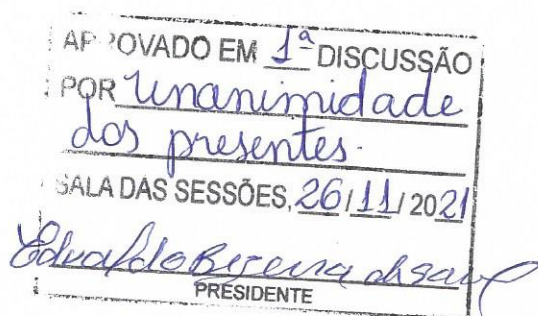 APROVADO EM 1ª DISCUSSÃO
POR Unanimidade
dos presentes.
SALA DAS SESSÕES, 26/11/2021
Edvaldo Bezerra
PRESIDENTE